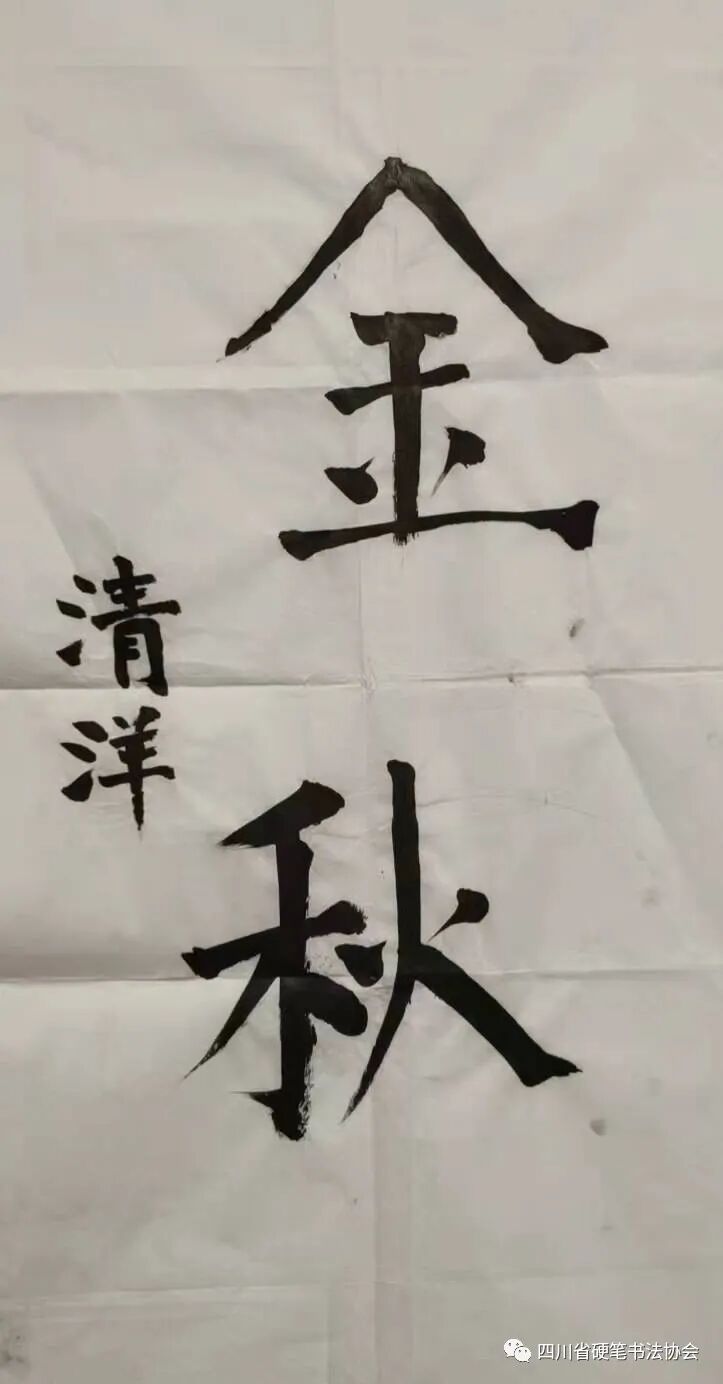 金秋
清洋
四川省硬笔书法协会